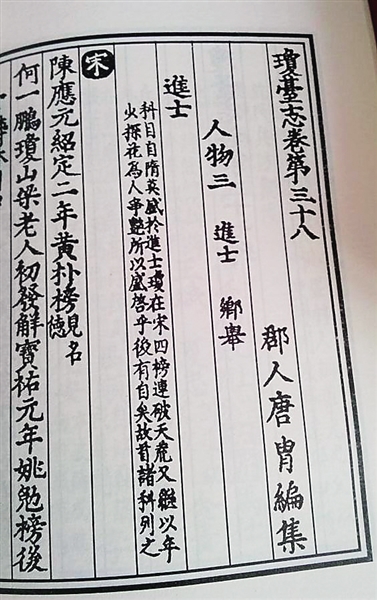 瓊臺志卷第三十八
郡人唐胄編集
人物三 進士 鄉舉
進士
科目自隋莫盛於進士瓊在宋四榜連破天荒又繼以年
少探花為人爭艷所以盛啓乎後有自矣故首諸科列之
宋
陳應元紹定二年黃朴榜見名德
何一鵬瓊山梁老人初發解寶祐元年姚勉榜後